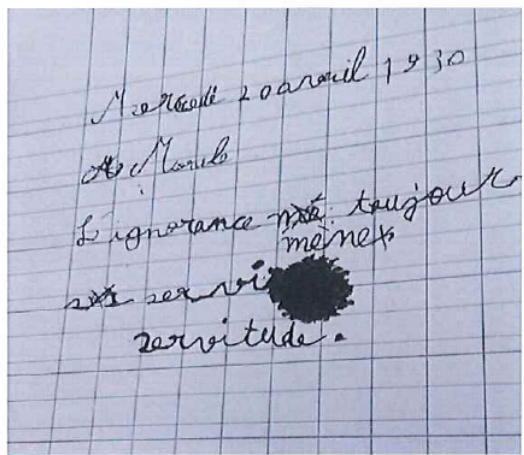 Mercredi 20 avril 1930
L'ignorance toujour
mène
servi
servitude.